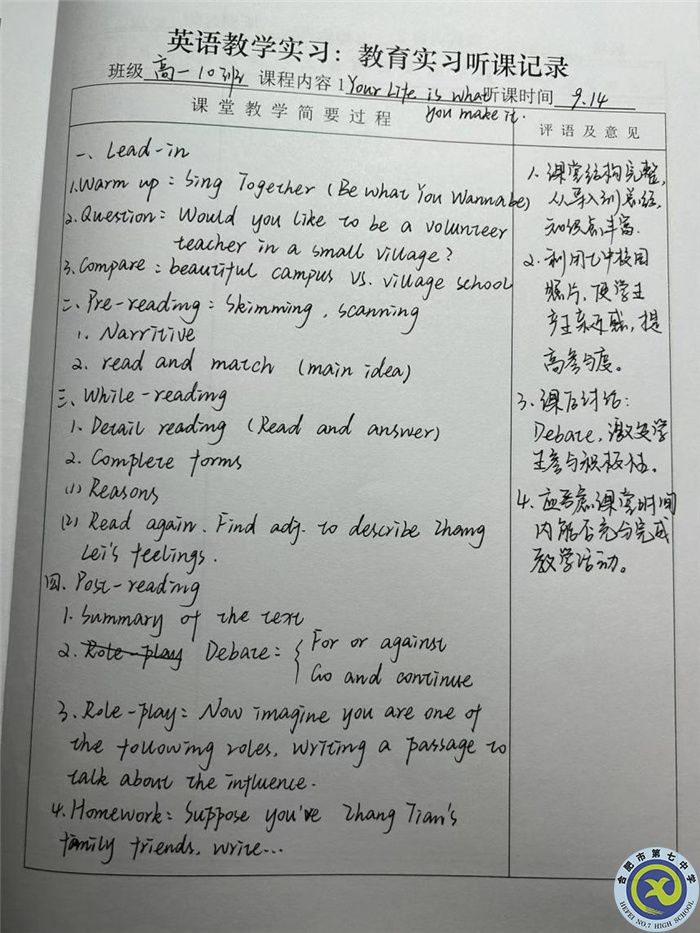 英语教学实习：教育实习听课记录
班级 高一10班 课程内容 1 Your Life is what 听课时间 9.14
you make it.
课堂教学简要过程
评语及意见
一、Lead-in
1. Warm up : Sing Together (Be what You Wannabe)
2. Question : Would you like to be a volunteer
teacher in a small village?
3. Compare : beautiful campus vs. village school
二、Pre-reading : Skimming , scanning
1. Narritive
2. read and match (main idea)
三、While-reading
1. Detail reading (Read and answer)
2. Complete forms
(1) Reasons
(2) Read again. Find adj. to describe Zhang
Lei's feelings.
四、Post-reading
1. Summary of the text
2. Role-play Debate : { For or against
Go and continue
3. Role-play : Now imagine you are one of
the following roles, writing a passage to
talk about the influence.
4. Homework : Suppose you're Zhang Tian's
family friends, write...
1. 课堂结构完整，
从导入到总结，
知识点丰富.
2. 利用七中校园
照片，使学生
产生亲近感，提
高参与度。
3. 课后讨论：
Debate，激发学
生参与积极性。
4. 应考虑课堂时间
内能否充分完成
教学活动。
合肥市第七中学
HEFEI NO.7 HIGH SCHOOL